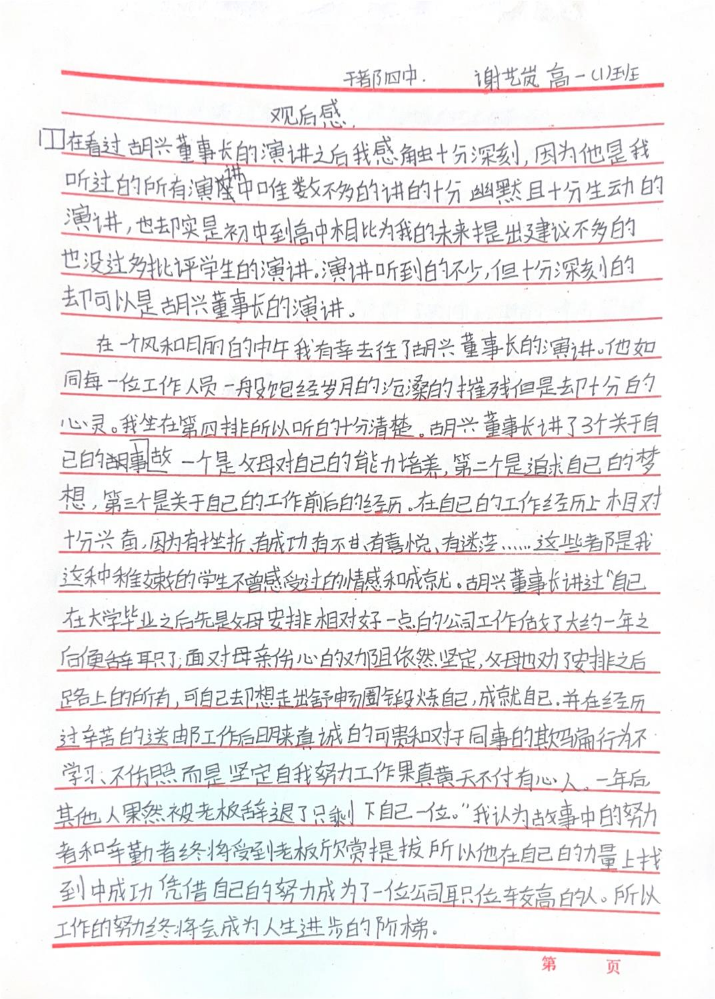 于都四中. 谢艺岚 高一(1)班
观后感.
在看过胡兴董事长的演讲之后我感触十分深刻,因为他是我
听过的所有演讲中唯数不多的讲的十分幽默且十分生动的
演讲,也却实是初中到高中相比为我的未来提出建议不多的
也没过多批评学生的演讲.演讲听到的不少,但十分深刻的
却可以是胡兴董事长的演讲。
在一个风和日丽的中午我有幸去往了胡兴董事长的演讲。他如
同每一位工作人员一般饱经岁月的沧桑的摧残但是却十分的
心灵。我坐在第四排所以听的十分清楚。胡兴董事长讲了3个关于自
己的故事 一个是父母对自己的能力培养,第二个是追求自己的梦
想,第三个是关于自己的工作前后的经历。在自己的工作经历上相对
十分兴奋,因为有挫折、有成功、有不甘、有喜悦、有迷茫……这些都是我
这种稚嫩的学生不曾感受过的情感和成就。胡兴董事长讲过"自己
在大学毕业之后先是父母安排相对好一点的公司工作估故了大约一年之
后便辞职了,面对母亲伤心的劝阻依然坚定,父母也劝了安排之后
路上的所有,可自己却想走出舒畅圈锻炼自己,成就自己.并在经历
过辛苦的送邮工作后明来真诚的可贵和对于同事的欺骗行为不
学习、不仿照而是坚定自我努力工作果真黄天不付有心人.一年后
其他人果然被老板辞退了只剩下自己一位。"我认为故事中的努力
者和辛勤者终将受到老板欣赏提拔所以他在自己的力量上找
到中成功 凭借自己的努力成为了一位公司职位较高的人。所以
工作的努力终将会成为人生进步的阶梯。
第 页